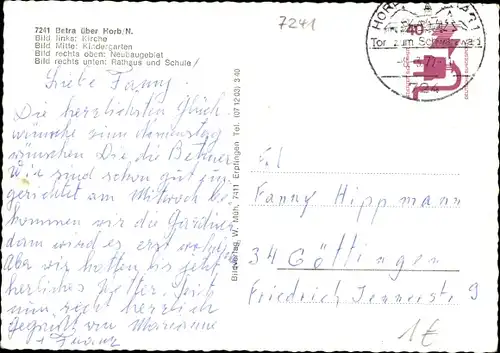 7241
7241 Betra über Horb/N.
Bild links: Kirche
Bild Mitte: Kindergarten
Bild rechts oben: Neubaugebiet
Bild rechts unten: Rathaus und Schule/
HORB
Tor zum Schwarzwald
724
40
Liebe Fanny
Die herzlichsten Glück
wünsche zum Namenstag
wünschen Dir, die Betraer
Wir sind schon gut ein
gerichtet am Mittwoch be
kommen wir die Gardinen
dann wird es erst
Aber wir hatten bis jetzt
herrliches Wetter. Seit
nun, recht herzlich
gegrüßt von Marianne
+ Franz
Bildverlag W. Müh, 7411 Erpfingen Tel. (07 12 03) 3 40
Fanny Hippmann
34 Göttingen
Friedrich Jennerstr 9
1€